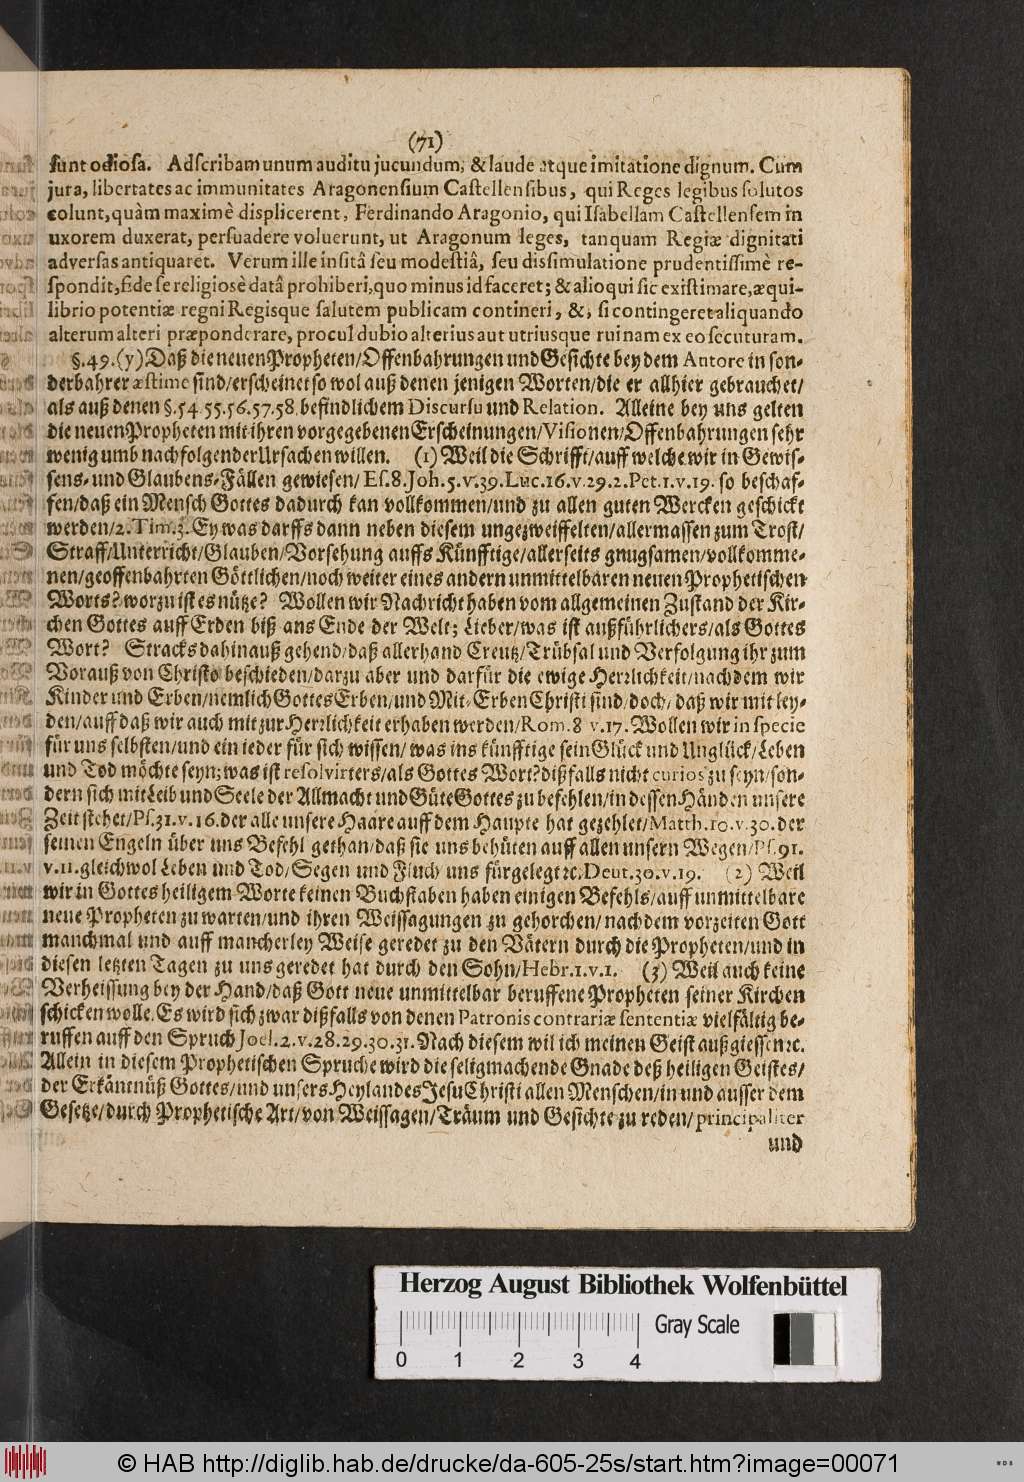 (71)
sunt odiosa. Adscribam unum auditu jucundum, & laude atque imitatione dignum. Cum
jura, libertates ac immunitates Aragonensium Castellensibus, qui Reges legibus solutos
colunt, quàm maximè displicerent, Ferdinando Aragonio, qui Isabellam Castellensem in
uxorem duxerat, persuadere voluerunt, ut Aragonum leges, tanquam Regiæ dignitati
adversas antiquaret. Verum ille insitâ seu modestiâ, seu dissimulatione prudentissimè re-
spondit, fide se religiosè datâ prohiberi, quo minus id faceret; & alioqui sic existimare, æqui-
librio potentiæ regni Regisque salutem publicam contineri, &, si contingeret aliquando
alterum alteri præponderare, procul dubio alterius aut utriusque ruinam ex eo secuturam.
§. 49. (y) Daß die neuen Propheten/Offenbahrungen und Gesichte bey dem Autore in son-
derbahrer æstime sind/erscheinet so wol auß denen jenigen Worten/die er allhier gebrauchet/
als auß denen §. 54. 55. 56. 57. 58. befindlichem Discursu und Relation. Alleine bey uns gelten
die neuen Propheten mit ihren vorgegebenen Erscheinungen/Visionen/Offenbahrungen sehr
wenig umb nachfolgender Ursachen willen. (1) Weil die Schrifft/auff welche wir in Gewis-
sens- und Glaubens-Fällen gewiesen/ Es. 8. Joh. 5. v. 39. Luc. 16. v. 29. 2. Pet. 1. v. 19. so beschaf-
fen/daß ein Mensch Gottes dadurch kan vollkommen/und zu allen guten Wercken geschickt
werden/2. Tim. 3. Ey was darffs dann neben diesem ungezweiffelten/allermassen zum Trost/
Straff/Unterricht/Glauben/Vorsehung auffs Künfftige/allerseits gnugsamen/vollkomme-
nen/geoffenbahrten Göttlichen/noch weiter eines andern unmittelbaren neuen Prophetischen
Worts? worzu ist es nütze? Wollen wir Nachricht haben vom allgemeinen Zustand der Kir-
chen Gottes auff Erden biß ans Ende der Welt; Lieber/was ist außführlichers/als Gottes
Wort? Stracks dahinauß gehend/daß allerhand Creutz/Trübsal und Verfolgung ihr zum
Vorauß von Christo beschieden/darzu aber und darfür die ewige Herrlichkeit/nachdem wir
Kinder und Erben/nemlich Gottes Erben/und Mit-Erben Christi sind/doch/ daß wir mit ley-
den/auff daß wir auch mit zur Herrlichkeit erhaben werden/Rom. 8 v. 17. Wollen wir in specie
für uns selbsten/und ein ieder für sich wissen/ was ins künfftige sein Glück und Unglück/Leben
und Tod möchte seyn; was ist resolvirters/als Gottes Wort? dißfalls nicht curios zu seyn/son-
dern sich mit Leib und Seele der Allmacht und Güte Gottes zu befehlen/in dessen Händen unsere
Zeit stehet/Ps. 31. v. 16. der alle unsere Haare auff dem Haupte hat gezehlet/Matth. 10. v. 30. der
seinen Engeln über uns Befehl gethan/daß sie uns behüten auff allen unsern Wegen/Ps. 91.
v. 11. gleichwol Leben und Tod/Segen und Fluch uns fürgelegt ꝛc. Deut. 30. v. 19. (2) Weil
wir in Gottes heiligem Worte keinen Buchstaben haben einigen Befehls/auff unmittelbare
neue Propheten zu warten/und ihren Weissagungen zu gehorchen/nachdem vorzeiten Gott
manchmal und auff mancherley Weise geredet zu den Vätern durch die Propheten/und in
diesen letzten Tagen zu uns geredet hat durch den Sohn/Hebr. 1. v. 1. (3) Weil auch keine
Verheissung bey der Hand/daß Gott neue unmittelbar beruffene Propheten seiner Kirchen
schicken wolle. Es wird sich zwar dißfalls von denen Patronis contrariæ sententiæ vielfältig be-
ruffen auff den Spruch Joel. 2. v. 28. 29. 30. 31. Nach diesem wil ich meinen Geist außgiessen ꝛc.
Allein in diesem Prophetischen Spruche wird die seligmachende Gnade deß heiligen Geistes/
der Erkäntnüß Gottes/und unsers Heylandes Jesu Christi allen Menschen/in und ausser dem
Gesetze/durch Prophetische Art/von Weissagen/Träum und Gesichte zu reden/principaliter
und
Herzog August Bibliothek Wolfenbüttel
Gray Scale
0 1 2 3 4
© HAB http://diglib.hab.de/drucke/da-605-25s/start.htm?image=00071